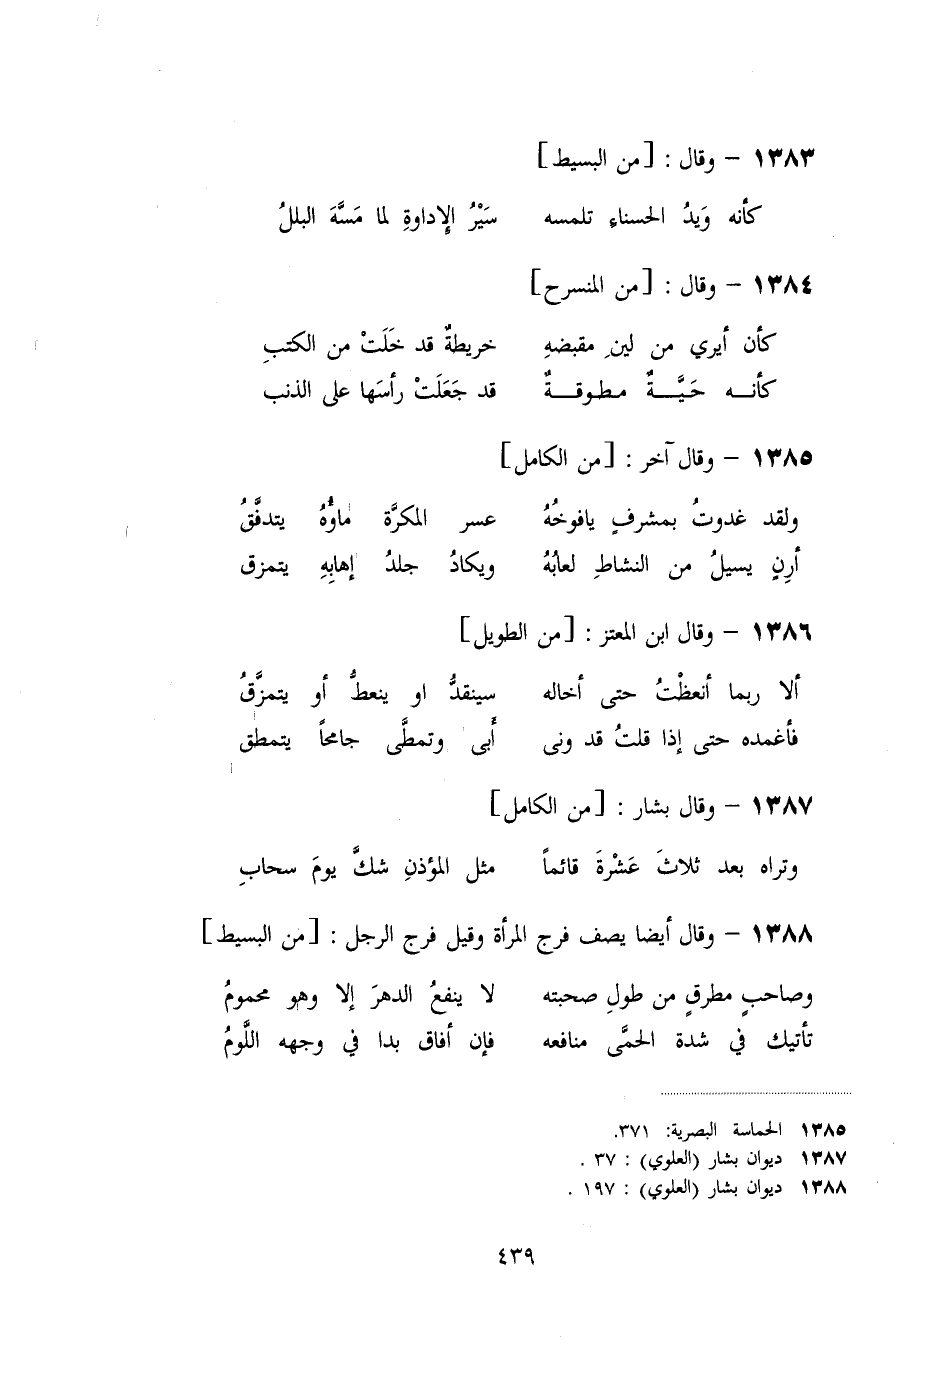 ١٣٨٣ - وقال : [من البسيط]
كأنه وَيدُ الحسناءِ تلمسه سَيْرُ الإداوةِ لما مَسَّهَ البللُ
١٣٨٤ - وقال : [من المنسرح]
كأن أيري من لينِ مقبضهِ خريطةٌ قد خَلَتْ من الكتبِ
كأنــه حَيَّــةٌ مطوقــةٌ قد جَعَلَتْ رأسَها على الذنب
١٣٨٥ - وقال آخر : [من الكامل]
ولقد غدوتُ بمشرفٍ يافوخُهُ عسر المكرَّة ماوُّهُ يتدفَّقُ
أرِنٍ يسيلُ من النشاطِ لعابُهُ ويكادُ جلدُ إهابِهِ يتمزق
١٣٨٦ - وقال ابن المعتز : [من الطويل]
ألا ربما أنعظْتُ حتى أخاله سينقدُّ او ينعطُّ أو يتمزَّقُ
فأغمده حتى إذا قلتُ قد ونى أبى وتمطَّى جامحاً يتمطق
١٣٨٧ - وقال بشار : [من الكامل]
وتراه بعد ثلاثَ عَشْرةَ قائماً مثل المؤذنِ شكَّ يومَ سحابِ
١٣٨٨ - وقال أيضا يصف فرج المرأة وقيل فرج الرجل : [من البسيط]
وصاحبٍ مطرقٍ من طولِ صحبته لا ينفعُ الدهرَ إلا وهو محمومُ
تأتيك في شدة الحمَّى منافعه فإن أفاق بدا في وجهه اللَّومُ
١٣٨٥ الحماسة البصرية: ٣٧١.
١٣٨٧ ديوان بشار (العلوي) : ٣٧ .
١٣٨٨ ديوان بشار (العلوي) : ١٩٧ .
٤٣٩